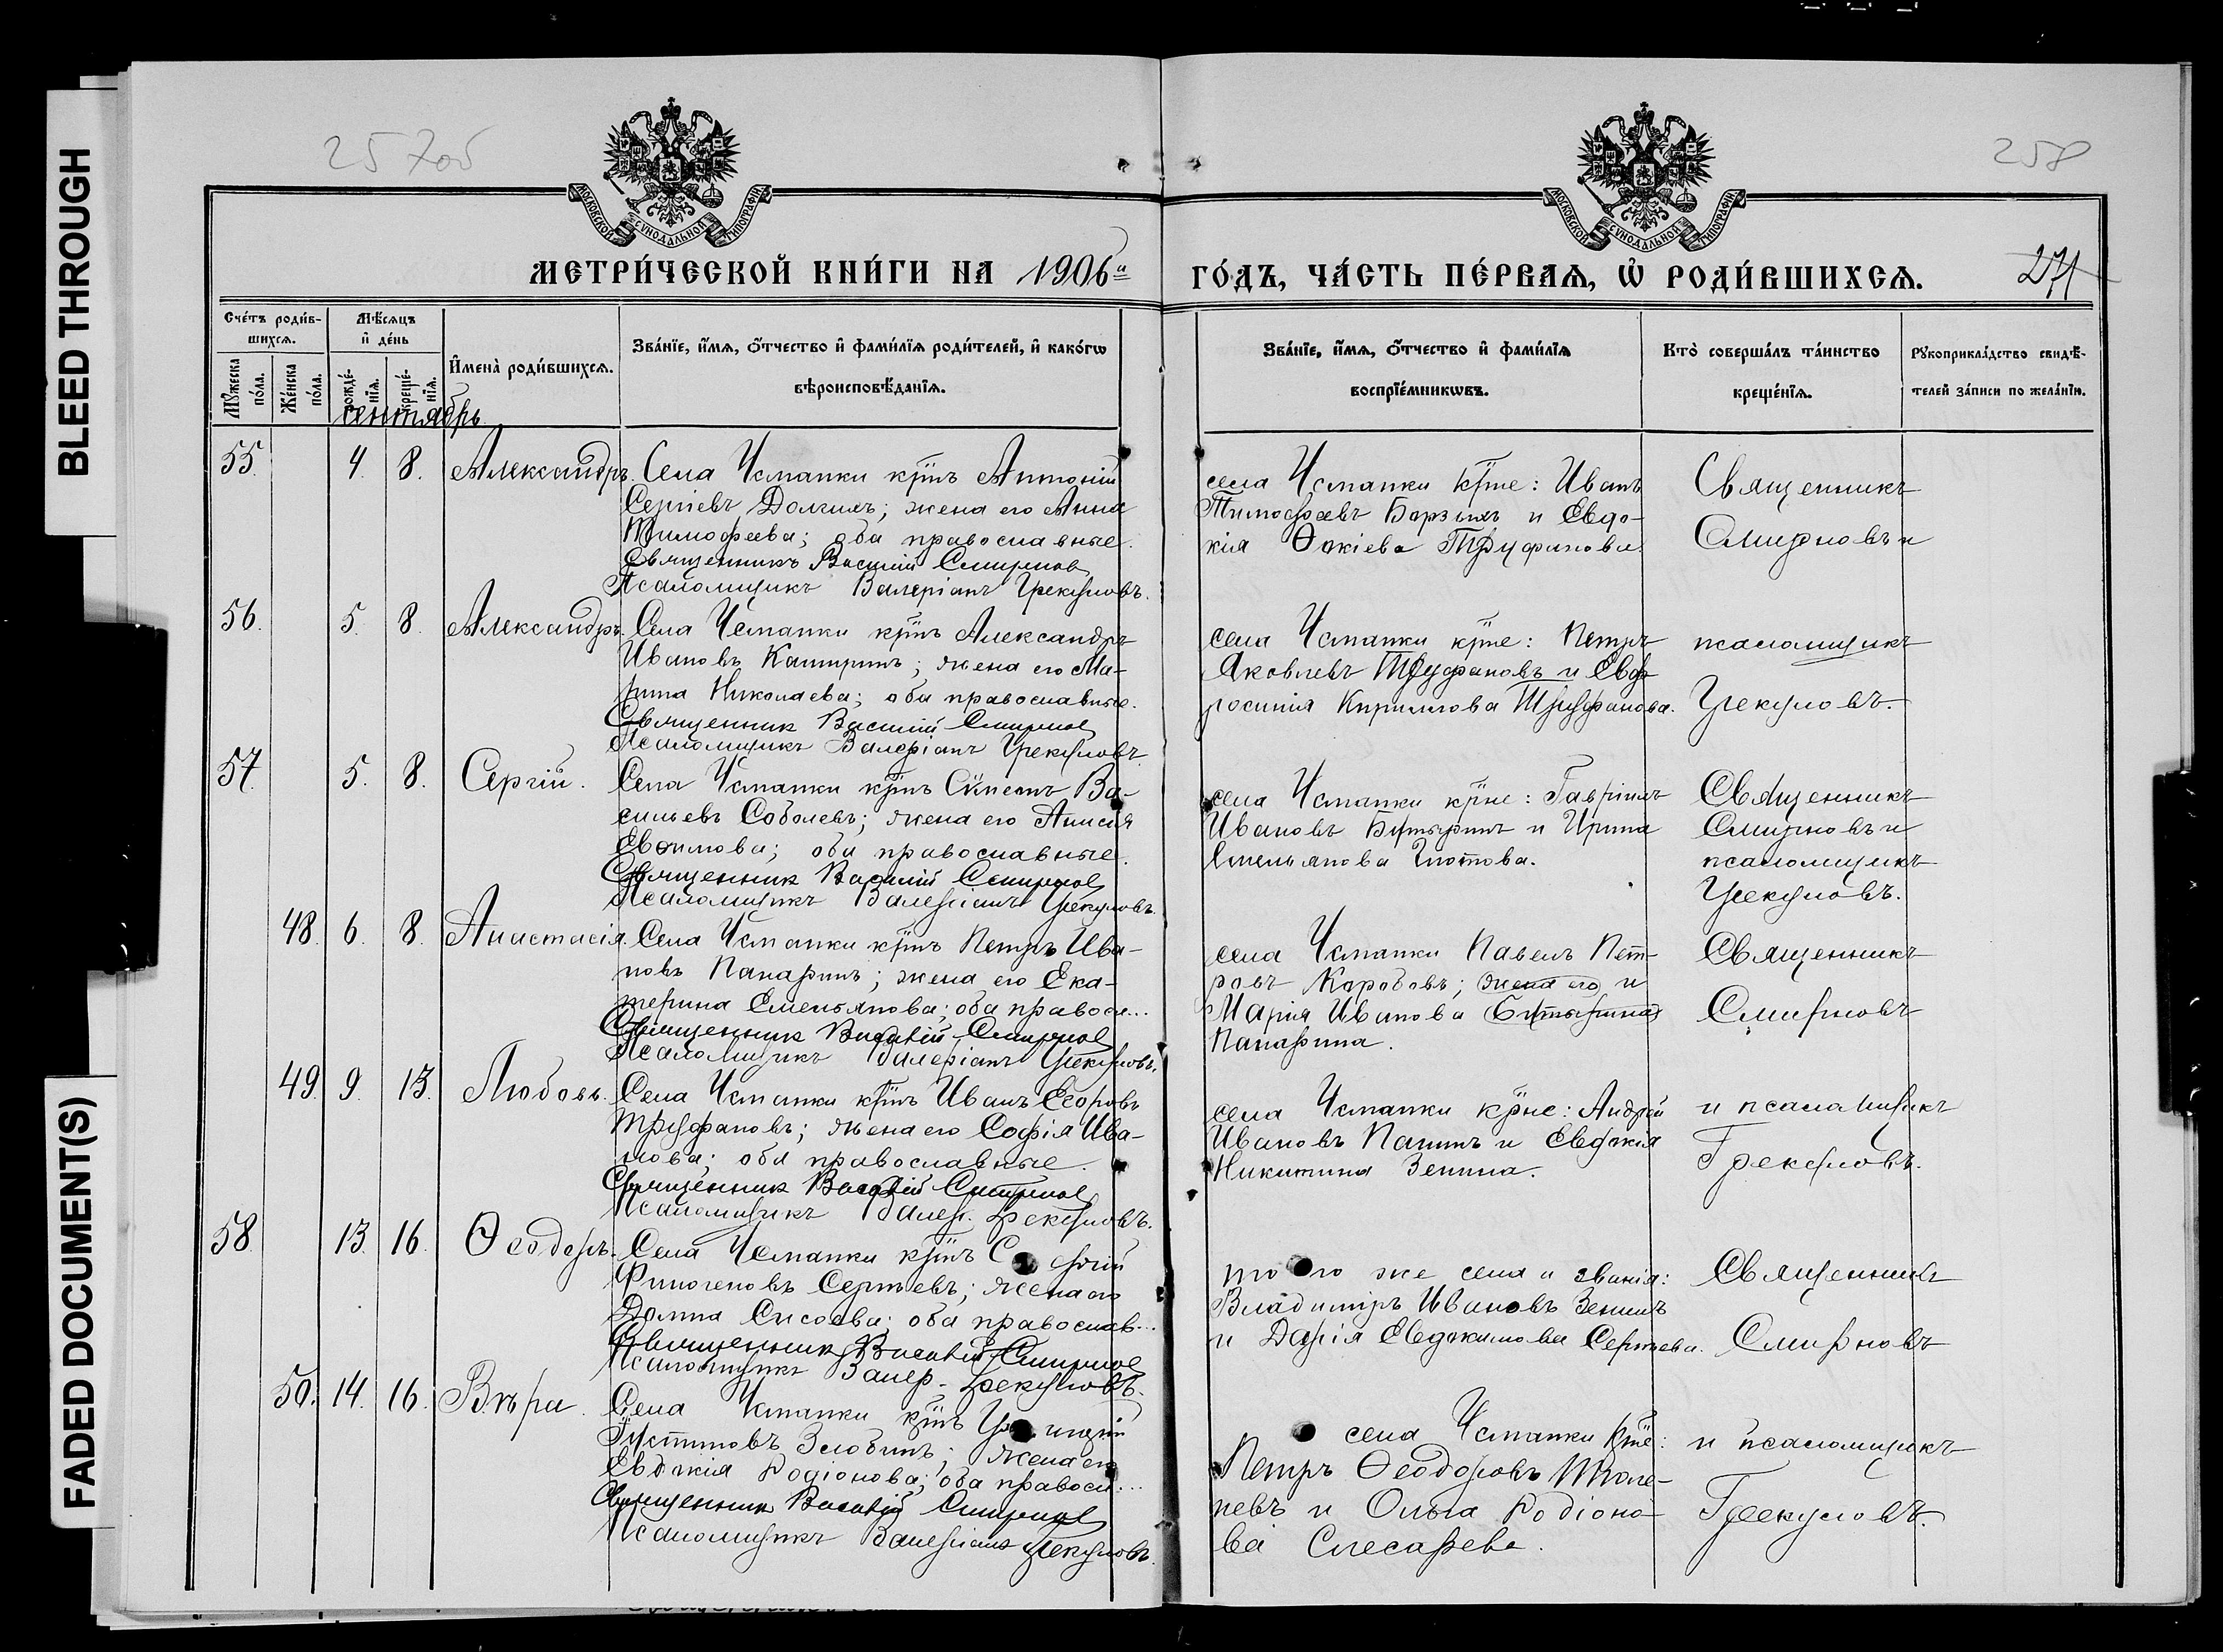 BLEED THROUGH
FADED DOCUMENT(S)
257об
258
МОСКОВСКОЙ СѴНОДАЛЬНОЙ ТИПОГРАФІИ
МОСКОВСКОЙ СѴНОДАЛЬНОЙ ТИПОГРАФІИ
МЕТРИ́ЧЕСКОЙ КНИ́ГИ НА 1906й
ГО́ДЪ, ЧА́СТЬ ПЕ́РВАѦ, Ѡ РОДИ́ВШИХСѦ.
271
Сче́тъ роди́в-
шихсѧ.
Мꙋ́жеска по́ла.
Же́нска по́ла.
Мѣ́сѧцъ
и҆ де́нь
рожде́-
нїѧ.
креще́-
нїѧ.
И҆мена̀ роди́вшихсѧ.
Зва́нїе, и҆́мѧ, ѻ҆́тчество и҆ фами́лїѧ роди́телей, и҆ како́гѡ
вѣроисповѣ́данїѧ.
Зва́нїе, и҆́мѧ, ѻ҆́тчество и҆ фами́лїѧ
воспрїе́мникѡвъ.
Кто̀ соверша́лъ та́инство
креще́нїѧ.
Рꙋкоприкла́дство свидѣ́-
телей за́писи по жела́нїю.
сентябрь
55. 4. 8. Александръ. Села Чсманки крнъ Антоній
Сергіевъ Долгихъ; жена его Анна
Тимофеева; оба православные.
Священникъ Василій Смирнов
Псаломщикъ Валеріанъ Грекуловъ.
села Чсманки крне: Иванъ
Тимофеевъ Борзыхъ и Евдо-
кія Фокіева Труфанова
Священникъ
Смирновъ и
56. 5. 8. Александръ. Села Чсманки крнъ Александръ
Ивановъ Каширинъ; жена его Ма-
рина Николаева; оба православные.
Священник Василий Смирнов
Псаломщикъ Валеріанъ Грекуловъ
села Чсманки крне: Петръ
Яковлевъ Труфановъ и Евф-
росинія Кириллова Труфанова.
псаломщикъ
Грекуловъ.
57. 5. 8. Сергій. Села Чсманки крнъ Сѵмеонъ Ва-
сильевъ Соболевъ; жена его Анисія
Евѳимова; оба православные.
Священник Василий Смирнов
Псаломщикъ Валеріанъ Грекуловъ.
села Чсманки крне: Гавріилъ
Ивановъ Бутыринъ и Ирина
Емельянова Глотова.
Священникъ
Смирновъ и
псаломщикъ
Грекуловъ.
48. 6. 8. Анастасія. Села Чсманки крнъ Петръ Ива-
новъ Панаринъ; жена его Ека-
терина Емельянова; оба правосл...
Священник Василий Смирнов
Псаломщикъ Валеріанъ Грекуловъ.
села Чсманки Павелъ Пет-
ровъ Коробовъ; жена его и
Марія Иванова Бутырина
Панарина.
Священникъ
Смирновъ
49. 9. 13. Любовь. Села Чсманки крнъ Иванъ Егоровъ
Труфановъ; жена его Софія Ива-
нова; оба православные.
Священник Василий Смирнов
Псаломщикъ Валер. Грекуловъ.
села Чсманки крне: Андрей
Ивановъ Панинъ и Евдокія
Никитина Зенина.
и псаломщикъ
Грекуловъ.
58. 13. 16. Ѳеодоръ. Села Чсманки крнъ
Финогеновъ Сергѣевъ; жена его
Домна Сисоева; оба православ...
Священник Василий Смирнов
Псаломщикъ Валер. Грекуловъ.
того же села и званія:
Владиміръ Ивановъ Зенинъ
и Дарія Евдокимова Сергѣева.
Священникъ
Смирновъ
50. 14. 16. Вѣра. Села Чсманки крнъ
Іустиновъ Злобинъ; жена его
Евдокія Родіонова; оба правосл...
Священник Василий Смирнов
Псаломщикъ Валеріанъ Грекуловъ.
села Чсманки крне:
Петръ Ѳеодоровъ
невъ и Ольга Родіоно-
ва Слесарева.
и псаломщикъ
Грекуловъ.